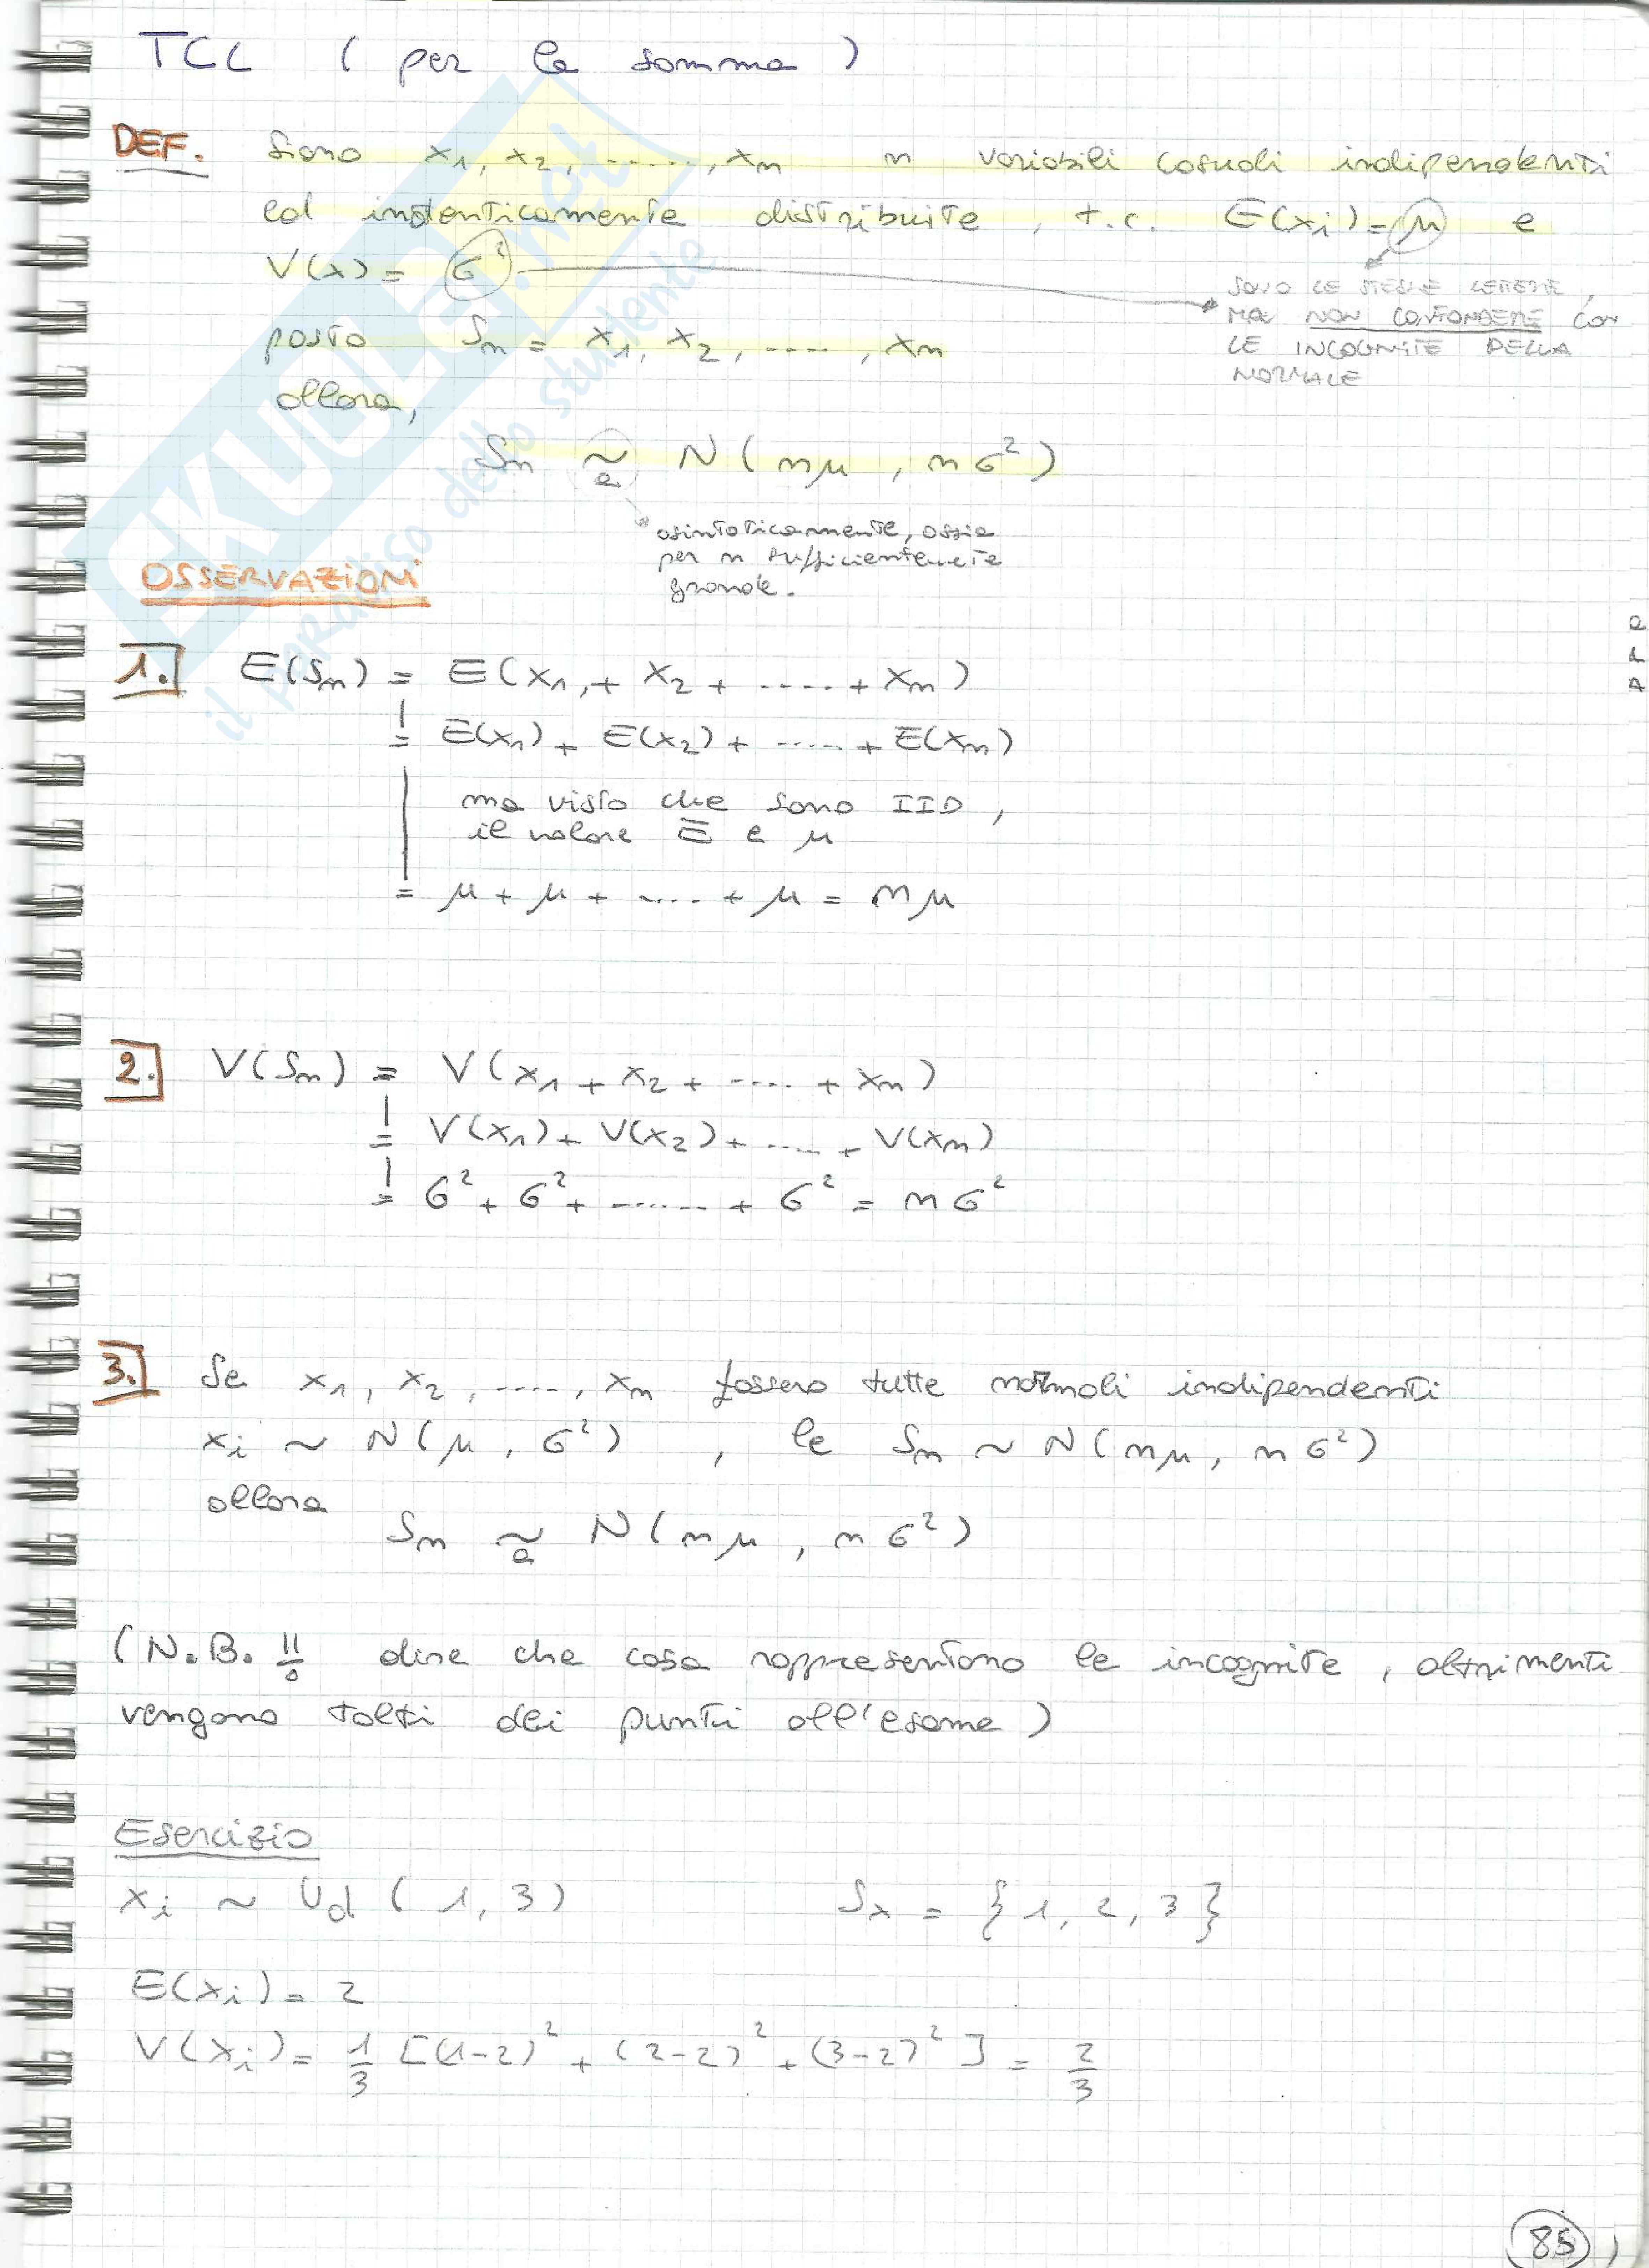 TCL ( per la somma )
DEF. Siano x1, x2, ......, xn n variabili casuali indipendenti
ed indenticamente distribuite, t.c. E(xi) = μ e
V(x) = σ²
SONO LE STESSE LETTERE,
MA NON CONFONDERE CON
LE INCOGNITE DELLA
NORMALE
posto Sn = x1, x2, ...., xn
allora,
Sn ~a N( nμ , nσ² )
asintoticamente, ossia
per n sufficientemete
grande.
OSSERVAZIONI
1. E(Sn) = E(x1, + x2 + ..... + xn)
= E(x1) + E(x2) + ..... + E(xn)
ma visto che sono IID,
il valore E e μ
= μ + μ + ..... + μ = nμ
2. V(Sn) = V(x1 + x2 + ..... + xn)
= V(x1) + V(x2) + ..... + V(xn)
= σ² + σ² + ....... + σ² = nσ²
3. Se x1, x2, ....., xn fossero tutte normali indipendenti
xi ~ N( μ, σ² ) , le Sn ~ N( nμ, nσ² )
allora
Sn ~a N( nμ , nσ² )
( N.B. !! dire che cosa rappresentano le incognite, altrimenti
vengono tolti dei punti all'esame )
Esercizio
xi ~ Ud ( 1, 3 ) Sx = { 1, 2, 3 }
E(xi) = 2
V(xi) = 1/3 [(1-2)² + (2-2)² + (3-2)²] = 2/3
85
SKUOLA.net
il paradiso dello studente